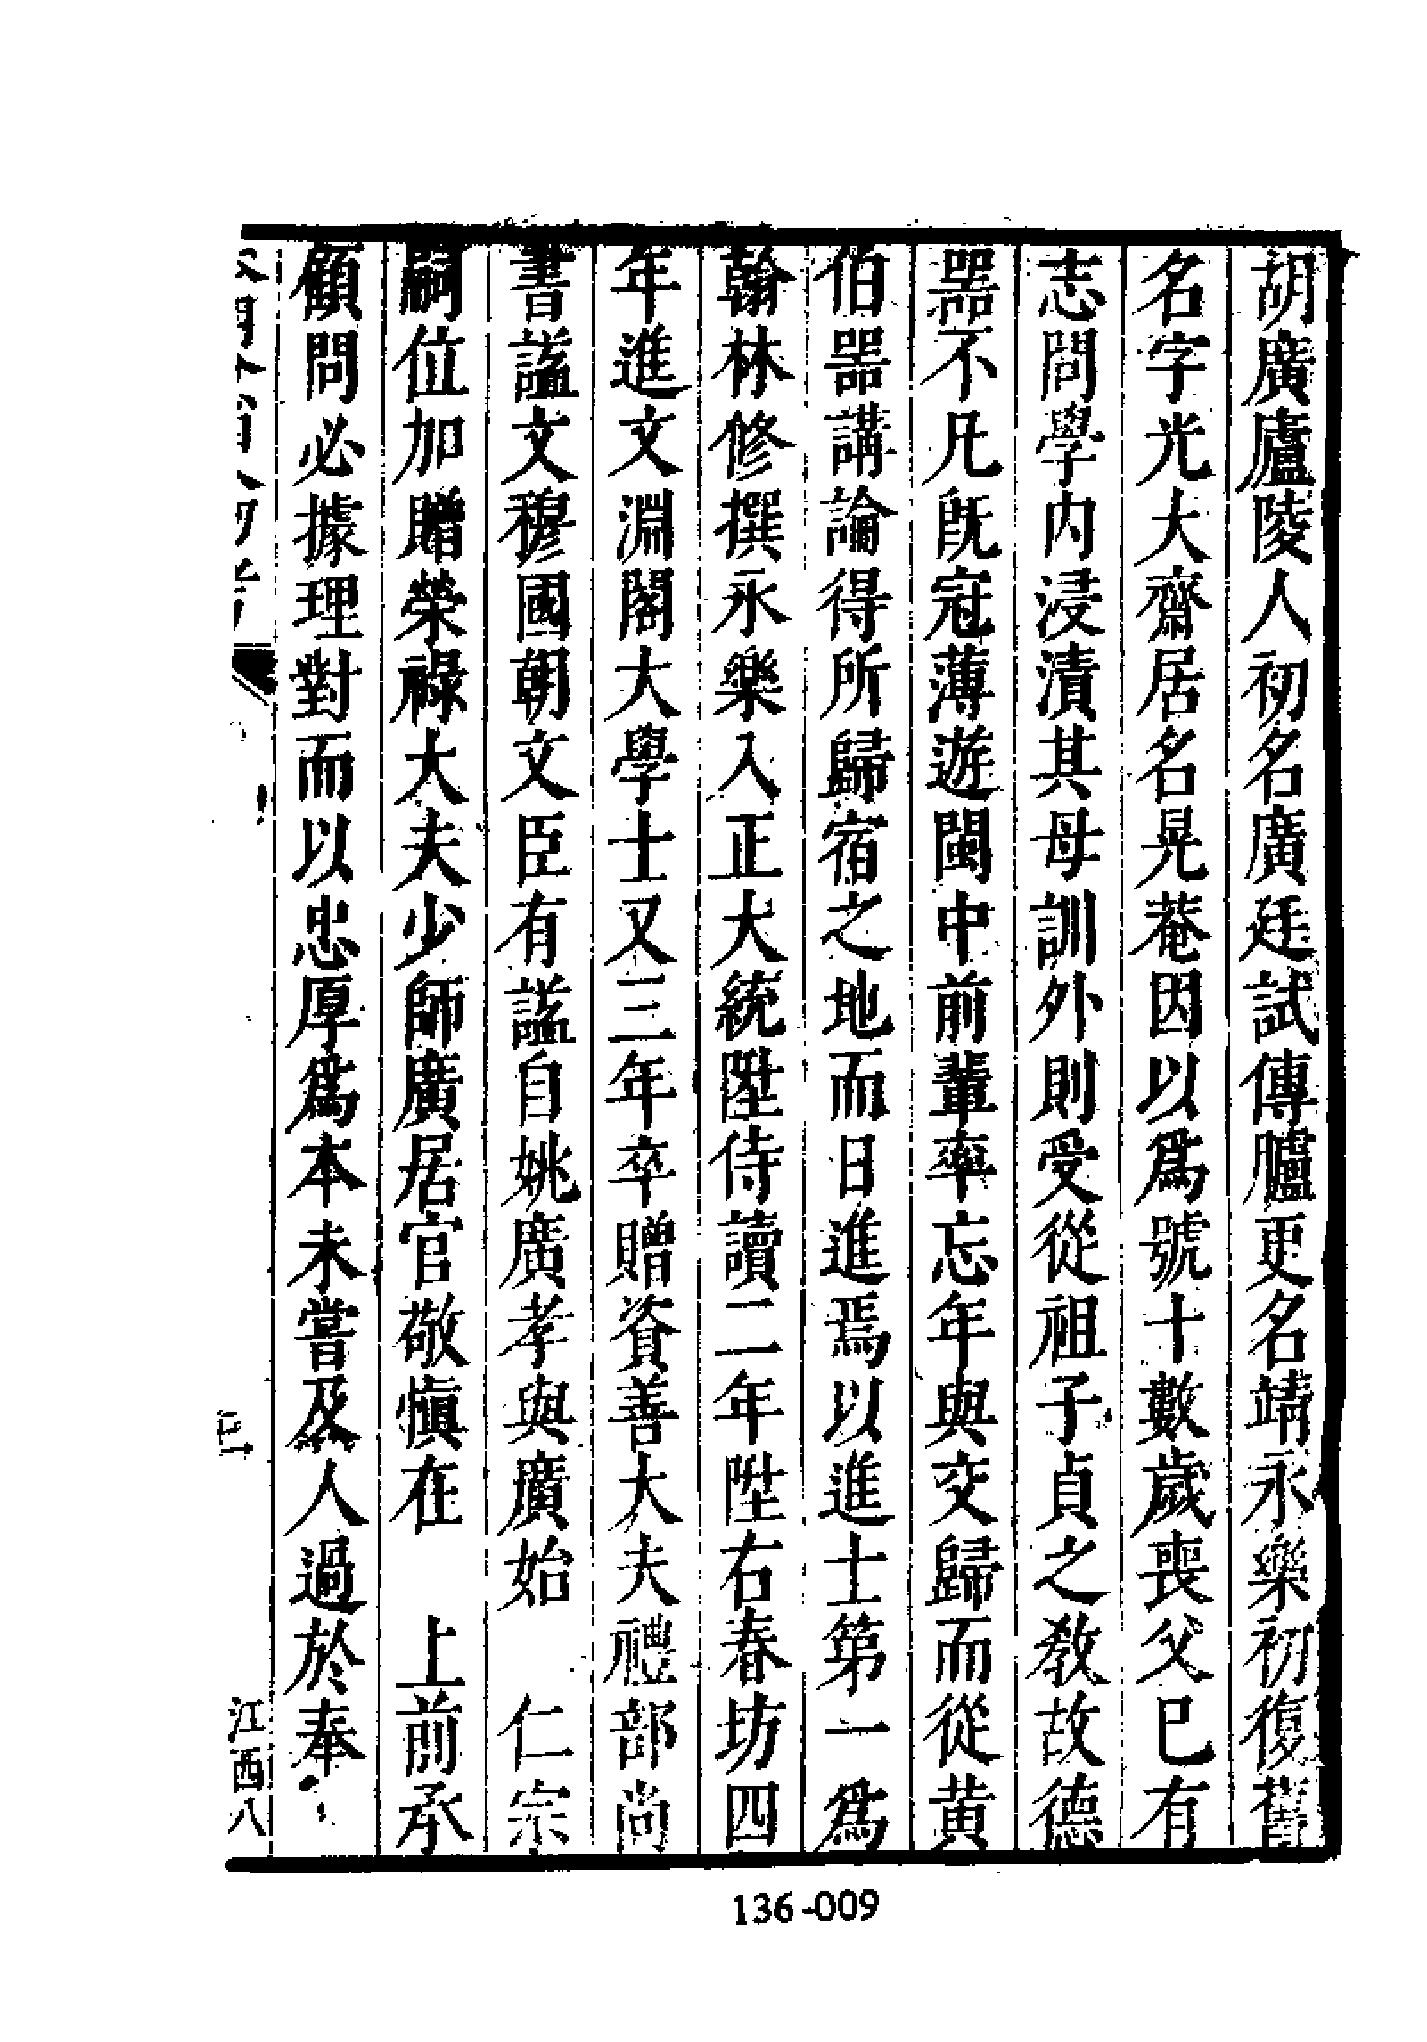 胡廣廬陵人初名廣廷試傳臚更名靖永樂初復舊
名字光大齋居名晃菴因以爲號十數歲喪父已有
志問學內浸漬其母訓外則受從祖子貞之敎故德
器不凡旣冠薄遊閩中前輩率忘年與交歸而從黃
伯器講論得所歸宿之地而日進焉以進士第一爲
翰林修撰永樂入正大統陞侍讀二年陞右春坊四
年進文淵閣大學士又三年卒贈資善大夫禮部尚
書謚文穆國朝文臣有謚自姚廣孝與廣始 仁宗
嗣位加贈榮祿大夫少師廣居官敬愼在 上前承
顧問必據理對而以忠厚爲本未嘗及人過於奉
江西八
136-009